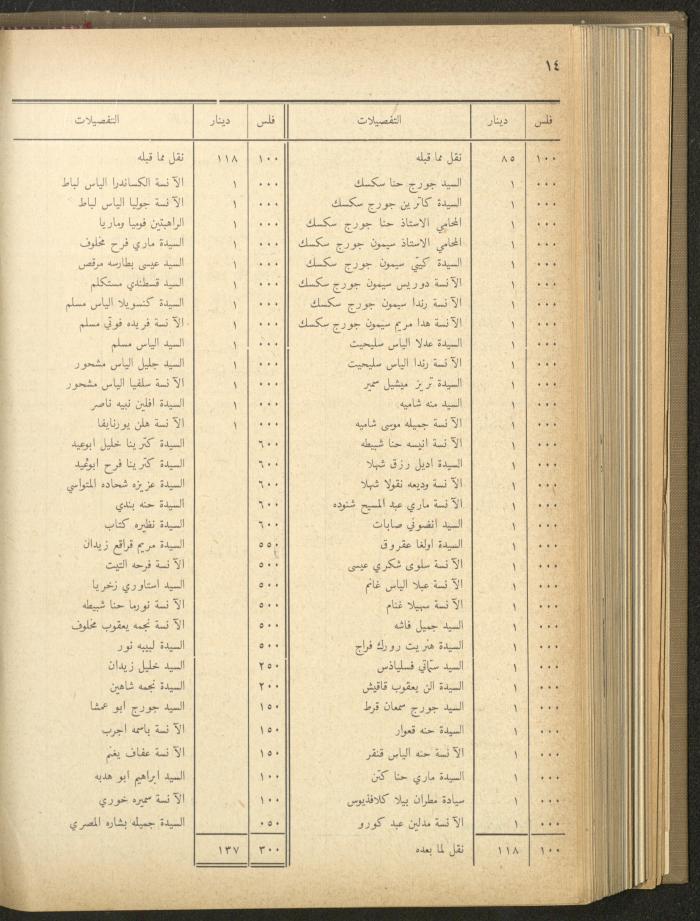 ١٤
فلس دينار التفصيلات
١٠٠ ٨٥ نقل مما قبله
٠٠٠ ١ السيد جورج حنا سكسك
٠٠٠ ١ السيدة كاترين جورج سكسك
٠٠٠ ١ المحامي الاستاذ حنا جورج سكسك
٠٠٠ ١ المحامي الاستاذ سيمون جورج سكسك
٠٠٠ ١ السيدة كيتي سيمون جورج سكسك
٠٠٠ ١ الآنسة دوريس سيمون جورج سكسك
٠٠٠ ١ الآنسة رندا سيمون جورج سكسك
٠٠٠ ١ الآنسة هدا مريم سيمون جورج سكسك
٠٠٠ ١ السيدة عدلا الياس سليحيت
٠٠٠ ١ الآنسة رندا الياس سليحيت
٠٠٠ ١ السيدة تريز ميشيل سمير
٠٠٠ ١ السيد منه شاميه
٠٠٠ ١ الآنسة جميله موسى شاميه
٠٠٠ ١ الآنسة انيسه حنا شبيطه
٠٠٠ ١ السيدة اديل رزق شهلا
٠٠٠ ١ الآنسة وديعه نقولا شهلا
٠٠٠ ١ الآنسة ماري عبد المسيح شنوده
٠٠٠ ١ السيد انضوني صابات
٠٠٠ ١ السيدة اولغا عقروق
٠٠٠ ١ الآنسة سلوى شكري عيسى
٠٠٠ ١ الآنسة عبلا الياس غانم
٠٠٠ ١ الآنسة سهيلا غنام
٠٠٠ ١ السيد جميل فاشه
٠٠٠ ١ السيدة هنريت رورك فراج
٠٠٠ ١ السيد ستماتي فسلياذس
٠٠٠ ١ السيدة الن يعقوب قاقيش
٠٠٠ ١ السيد جورج سمعان قرط
٠٠٠ ١ السيدة حنه قعوار
٠٠٠ ١ الآنسة حنه الياس قنقر
٠٠٠ ١ السيدة ماري حنا كتن
٠٠٠ ١ سيادة مطران بيلا كلافذيوس
٠٠٠ ١ الآنسة مدلين عبد كورو
١٠٠ ١١٨ نقل لما بعده
فلس دينار التفصيلات
١٠٠ ١١٨ نقل مما قبله
٠٠٠ ١ الآنسة الكساندرا الياس لباط
٠٠٠ ١ الآنسة جوليا الياس لباط
٠٠٠ ١ الراهبتين فوميا وماريا
٠٠٠ ١ السيدة ماري فرح مخلوف
٠٠٠ ١ السيد عيسى بطارسه مرقص
٠٠٠ ١ السيد قسطندي مستكلم
٠٠٠ ١ السيدة كنسويلا الياس مسلم
٠٠٠ ١ الآنسة فريده فوتي مسلم
٠٠٠ ١ السيد الياس مسلم
٠٠٠ ١ السيد جليل الياس مشحور
٠٠٠ ١ الآنسة سلفيا الياس مشحور
٠٠٠ ١ السيدة افلين نبيه ناصر
٠٠٠ ١ الآنسة هلن يورنايفا
٦٠٠ السيدة كترينا خليل ابوعيد
٦٠٠ السيدة كترينا فرح ابوعيد
٦٠٠ السيدة عزيزه شحاده المتواسي
٦٠٠ السيدة حنه بندي
٦٠٠ السيدة نظيره كتاب
٥٥٠ السيدة مريم قراقع زيدان
٥٠٠ الآنسة فرحه التيت
٥٠٠ السيد استاوري زخريا
٥٠٠ الآنسة نورما حنا شبيطه
٥٠٠ الآنسة نجمه يعقوب مخلوف
٥٠٠ السيدة لبيبه نور
٢٥٠ السيد خليل زيدان
٢٠٠ السيدة نجمه شاهين
١٥٠ السيد جورج ابو عمشا
١٥٠ الآنسة باسمه اجرب
١٥٠ الآنسة عفاف يغنم
١٠٠ السيد ابراهيم ابو هدبه
١٠٠ الآنسة سميره خوري
٠٥٠ السيدة جميله بشاره المصري
٣٠٠ ١٣٧